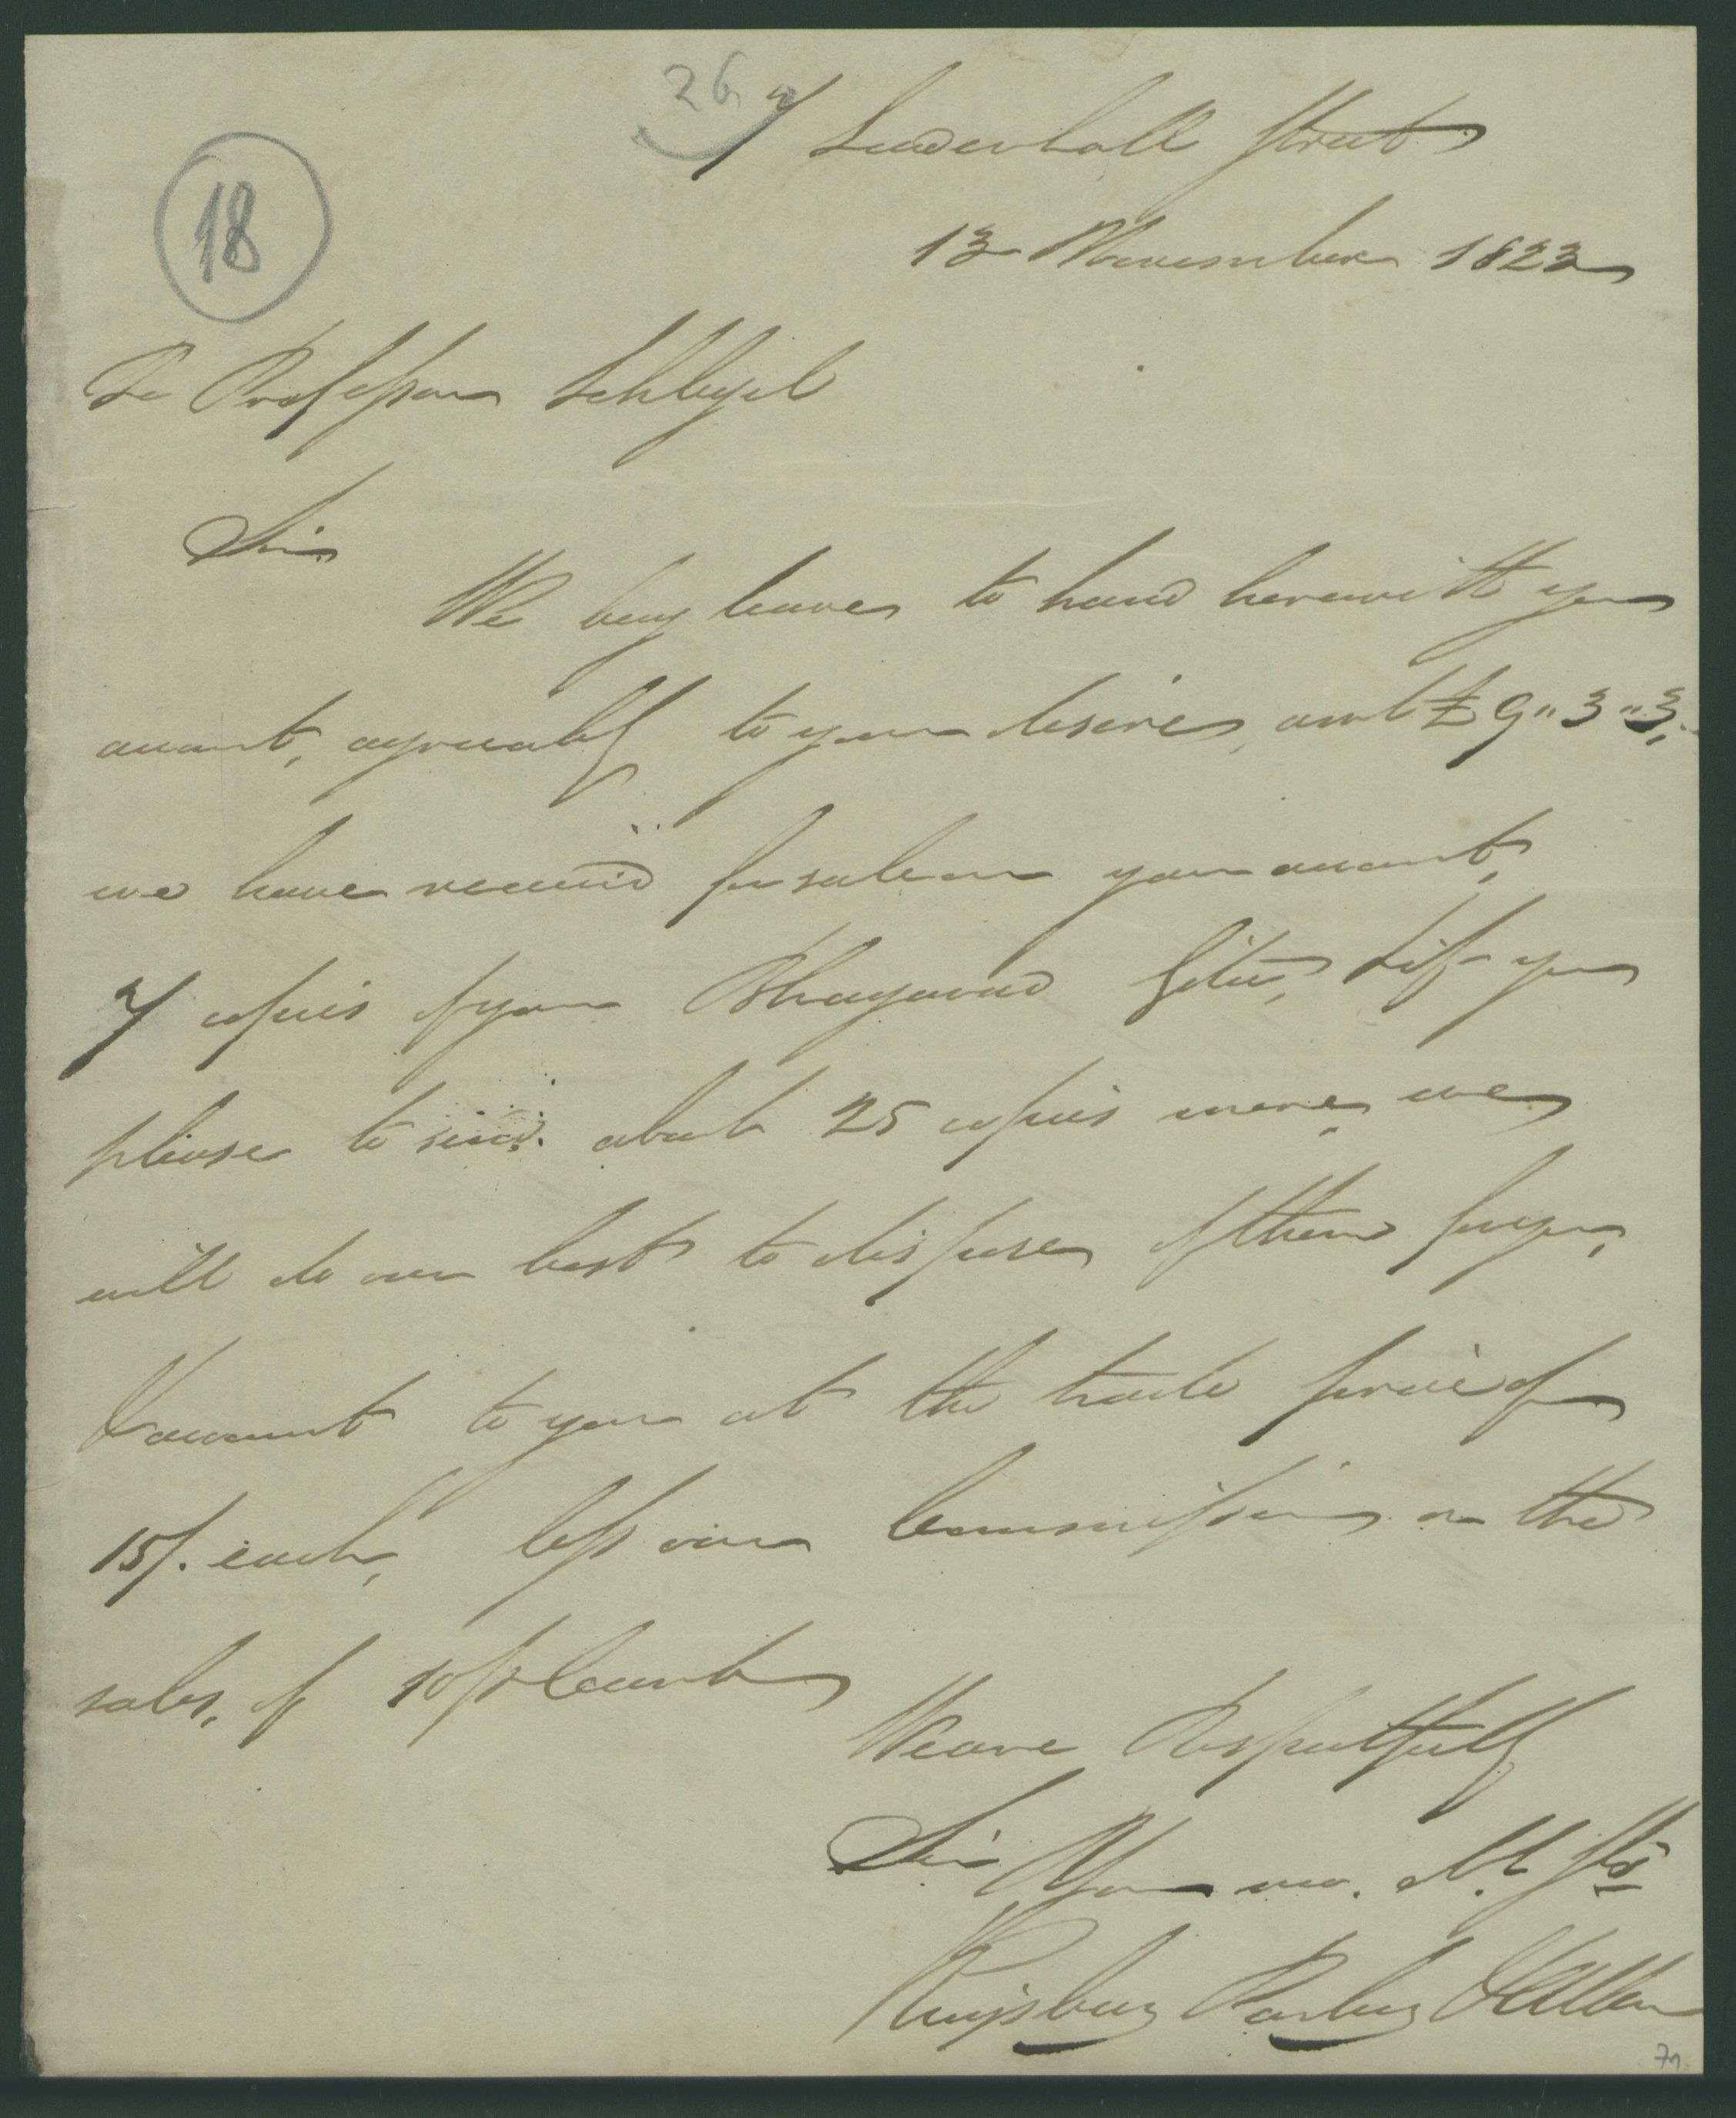 26
7 Leadenhall Street
18
13 November 1823
To Professor Schlegel
Sir
We beg leave to hand herewith your
account, agreeably to your desire, amt £9"3"3.
we have received for sale on your account,
7 copies of your Bhagavad Gita, & if you
please to send about 25 copies more, we
will do our best to dispose of them for you,
& account to you at the trade price of
15/. each, less our Commission on the
sales, of 10 p Cent
We are Respectfully
Sir Your mo. Ob.t S.ts
Kingsbury Parbury & Allen